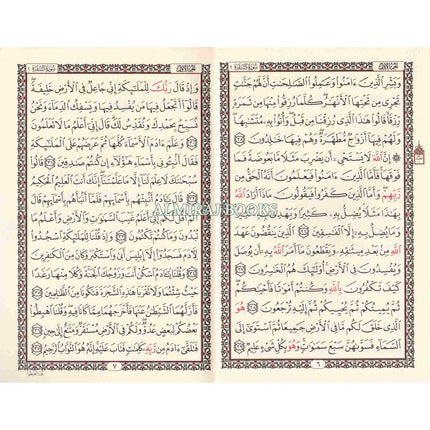 الجزء الأول سورة البقرة ٢
وَبَشِّرِ ٱلَّذِينَ ءَامَنُوا۟ وَعَمِلُوا۟ ٱلصَّٰلِحَٰتِ أَنَّ لَهُمْ جَنَّٰتٍ
تَجْرِى مِن تَحْتِهَا ٱلْأَنْهَٰرُ ۖ كُلَّمَا رُزِقُوا۟ مِنْهَا مِن ثَمَرَةٍ
رِّزْقًا ۙ قَالُوا۟ هَٰذَا ٱلَّذِى رُزِقْنَا مِن قَبْلُ ۖ وَأُتُوا۟ بِهِۦ مُتَشَٰبِهًا ۖ
وَلَهُمْ فِيهَآ أَزْوَٰجٌ مُّطَهَّرَةٌ ۖ وَهُمْ فِيهَا خَٰلِدُونَ ٢٥
۞ إِنَّ ٱللَّهَ لَا يَسْتَحْىِۦٓ أَن يَضْرِبَ مَثَلًا مَّا بَعُوضَةً فَمَا
فَوْقَهَا ۚ فَأَمَّا ٱلَّذِينَ ءَامَنُوا۟ فَيَعْلَمُونَ أَنَّهُ ٱلْحَقُّ مِن
رَّبِّهِمْ ۖ وَأَمَّا ٱلَّذِينَ كَفَرُوا۟ فَيَقُولُونَ مَاذَآ أَرَادَ ٱللَّهُ
بِهَٰذَا مَثَلًا ۘ يُضِلُّ بِهِۦ كَثِيرًا وَيَهْدِى بِهِۦ كَثِيرًا ۚ وَمَا
يُضِلُّ بِهِۦٓ إِلَّا ٱلْفَٰسِقِينَ ٢٦ ٱلَّذِينَ يَنقُضُونَ عَهْدَ
ٱللَّهِ مِنۢ بَعْدِ مِيثَٰقِهِۦ وَيَقْطَعُونَ مَآ أَمَرَ ٱللَّهُ بِهِۦٓ أَن يُوصَلَ
وَيُفْسِدُونَ فِى ٱلْأَرْضِ ۚ أُو۟لَٰٓئِكَ هُمُ ٱلْخَٰسِرُونَ ٢٧
كَيْفَ تَكْفُرُونَ بِٱللَّهِ وَكُنتُمْ أَمْوَٰتًا فَأَحْيَٰكُمْ ۖ
ثُمَّ يُمِيتُكُمْ ثُمَّ يُحْيِيكُمْ ثُمَّ إِلَيْهِ تُرْجَعُونَ ٢٨ هُوَ
ٱلَّذِى خَلَقَ لَكُم مَّا فِى ٱلْأَرْضِ جَمِيعًا ثُمَّ ٱسْتَوَىٰٓ إِلَى
ٱلسَّمَآءِ فَسَوَّىٰهُنَّ سَبْعَ سَمَٰوَٰتٍ ۚ وَهُوَ بِكُلِّ شَىْءٍ عَلِيمٌ ٢٩
٦
الجزء الأول سورة البقرة ٢
وَإِذْ قَالَ رَبُّكَ لِلْمَلَٰٓئِكَةِ إِنِّى جَاعِلٌ فِى ٱلْأَرْضِ خَلِيفَةً ۖ
قَالُوٓا۟ أَتَجْعَلُ فِيهَا مَن يُفْسِدُ فِيهَا وَيَسْفِكُ ٱلدِّمَآءَ وَنَحْنُ
نُسَبِّحُ بِحَمْدِكَ وَنُقَدِّسُ لَكَ ۖ قَالَ إِنِّىٓ أَعْلَمُ مَا لَا تَعْلَمُونَ
٣٠ وَعَلَّمَ ءَادَمَ ٱلْأَسْمَآءَ كُلَّهَا ثُمَّ عَرَضَهُمْ عَلَى ٱلْمَلَٰٓئِكَةِ
فَقَالَ أَنۢبِـُٔونِى بِأَسْمَآءِ هَٰٓؤُلَآءِ إِن كُنتُمْ صَٰدِقِينَ ٣١ قَالُوا۟
سُبْحَٰنَكَ لَا عِلْمَ لَنَآ إِلَّا مَا عَلَّمْتَنَآ ۖ إِنَّكَ أَنتَ ٱلْعَلِيمُ ٱلْحَكِيمُ
٣٢ قَالَ يَٰٓـَٔادَمُ أَنۢبِئْهُم بِأَسْمَآئِهِمْ ۖ فَلَمَّآ أَنۢبَأَهُم بِأَسْمَآئِهِمْ
قَالَ أَلَمْ أَقُل لَّكُمْ إِنِّىٓ أَعْلَمُ غَيْبَ ٱلسَّمَٰوَٰتِ وَٱلْأَرْضِ وَأَعْلَمُ مَا
تُبْدُونَ وَمَا كُنتُمْ تَكْتُمُونَ ٣٣ وَإِذْ قُلْنَا لِلْمَلَٰٓئِكَةِ ٱسْجُدُوا۟
لِـَٔادَمَ فَسَجَدُوٓا۟ إِلَّآ إِبْلِيسَ أَبَىٰ وَٱسْتَكْبَرَ وَكَانَ مِنَ ٱلْكَٰفِرِينَ
٣٤ وَقُلْنَا يَٰٓـَٔادَمُ ٱسْكُنْ أَنتَ وَزَوْجُكَ ٱلْجَنَّةَ وَكُلَا مِنْهَا رَغَدًا
حَيْثُ شِئْتُمَا وَلَا تَقْرَبَا هَٰذِهِ ٱلشَّجَرَةَ فَتَكُونَا مِنَ ٱلظَّٰلِمِينَ ٣٥
فَأَزَلَّهُمَا ٱلشَّيْطَٰنُ عَنْهَا فَأَخْرَجَهُمَا مِمَّا كَانَا فِيهِ ۖ وَقُلْنَا ٱهْبِطُوا۟
بَعْضُكُمْ لِبَعْضٍ عَدُوٌّ ۖ وَلَكُمْ فِى ٱلْأَرْضِ مُسْتَقَرٌّ وَمَتَٰعٌ إِلَىٰ حِينٍ ٣٦
فَتَلَقَّىٰٓ ءَادَمُ مِن رَّبِّهِۦ كَلِمَٰتٍ فَتَابَ عَلَيْهِ ۚ إِنَّهُۥ هُوَ ٱلتَّوَّابُ ٱلرَّحِيمُ ٣٧
٧
ALMIRAJ BOOKS